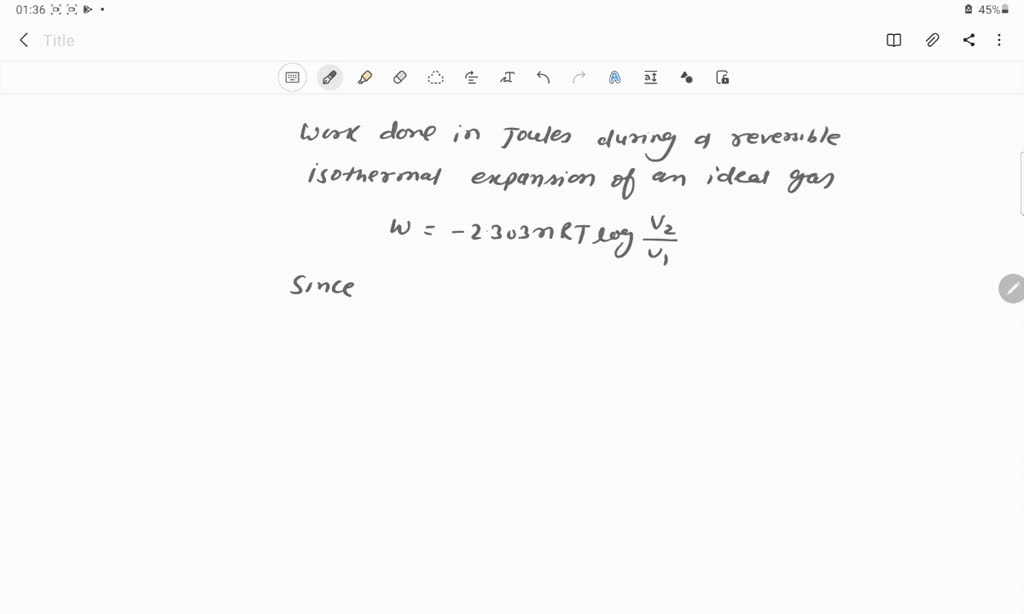 01:36
45%
Title
Work done in Joules during a reversible
isothermal expansion of an ideal gas
W = -2.303nRT log V2/V1
Since